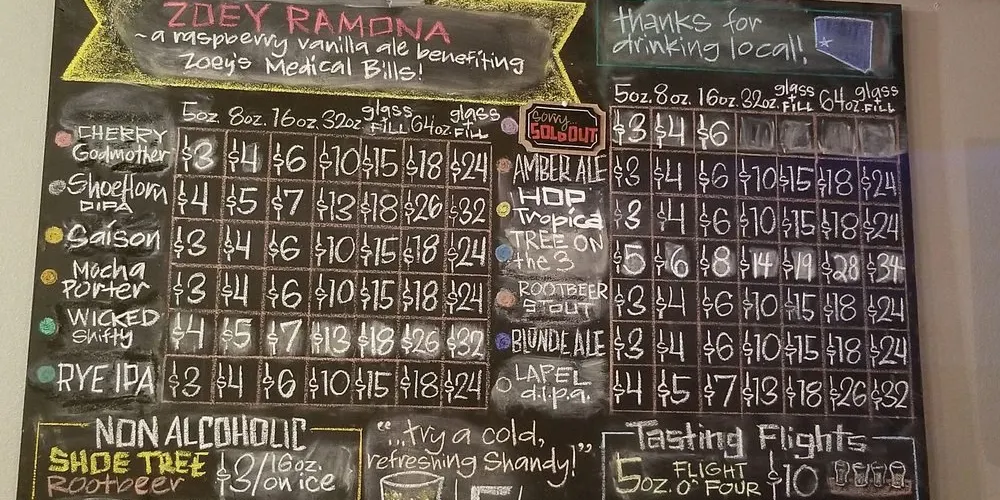 ZOEY RAMONA
~a raspberry vanilla ale benefiting
Zoey's Medical Bills!
thanks for
drinking local!
5oz. 8oz. 16oz. 32oz. glass FILL 64oz. glass FILL
CHERRY Godmother $3 $4 $6 $10 $15 $18 $24
ShoeHorn DIPA $4 $5 $7 $13 $18 $26 $32
Saison $3 $4 $6 $10 $15 $18 $24
Mocha Porter $3 $4 $6 $10 $15 $18 $24
WICKED Shifty $4 $5 $7 $13 $18 $26 $32
RYE IPA $3 $4 $6 $10 $15 $18 $24
5oz. 8oz. 16oz. 32oz. glass FILL 64oz. glass FILL
Sorry... SOLD OUT $3 $4 $6
AMBER ALE $3 $4 $6 $10 $15 $18 $24
HOP Tropica $3 $4 $6 $10 $15 $18 $24
TREE ON the 3 $5 $6 $8 $14 $19 $28 $34
ROOTBEER STOUT $3 $4 $6 $10 $15 $18 $24
BLONDE ALE $3 $4 $6 $10 $15 $18 $24
LAPEL d.i.p.a. $4 $5 $7 $13 $18 $26 $32
NON ALCOHOLIC
SHOE TREE
Rootbeer
$3/16oz.
on ice
"...try a cold,
refreshing Shandy!"
Tasting Flights
5oz. FLIGHT O' FOUR $10